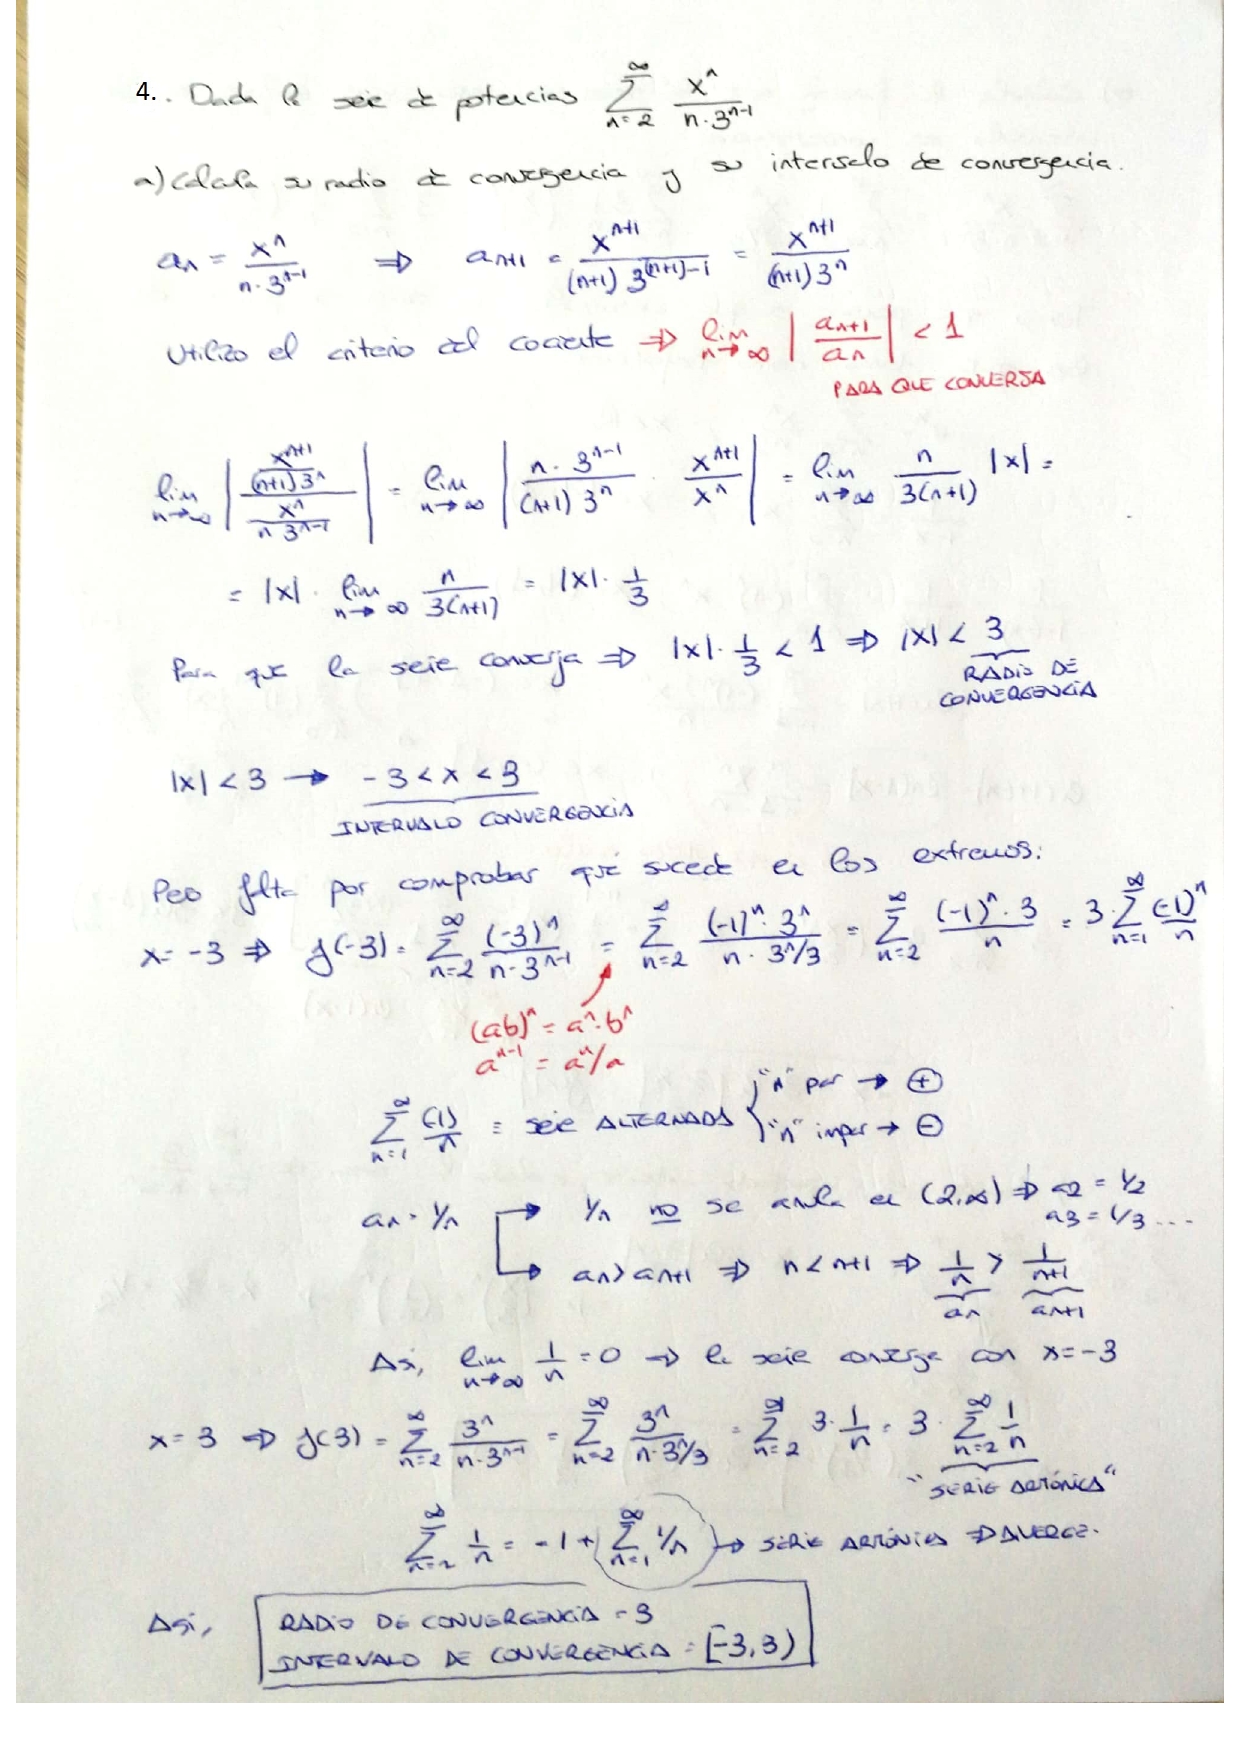 4. . Dada la serie de potencias ∑_{n=2}^{∞} x^n / (n·3^{n-1})
a) Calcula su radio de convergencia y su intervalo de convergencia.
a_n = x^n / (n·3^{n-1}) ⇒ a_{n+1} = x^{n+1} / ((n+1) 3^{(n+1)-1}) = x^{n+1} / ((n+1) 3^n)
Utilizo el criterio del cociente ⇒ lim_{n→∞} |a_{n+1} / a_n| < 1
PARA QUE CONVERJA
lim_{n→∞} | (x^{n+1} / ((n+1) 3^n)) / (x^n / (n 3^{n-1})) | = lim_{n→∞} | (n·3^{n-1}) / ((n+1) 3^n) · x^{n+1} / x^n | = lim_{n→∞} n / (3(n+1)) |x| =
= |x| · lim_{n→∞} n / (3(n+1)) = |x| · 1/3
Para que la serie converja ⇒ |x| · 1/3 < 1 ⇒ |x| < 3
RADIO DE
CONVERGENCIA
|x| < 3 → -3 < x < 3
INTERVALO CONVERGENCIA
Pero falta por comprobar qué sucede en los extremos:
x = -3 ⇒ f(-3) = ∑_{n=2}^{∞} (-3)^n / (n·3^{n-1}) = ∑_{n=2}^{∞} (-1)^n · 3^n / (n · 3^n/3) = ∑_{n=2}^{∞} (-1)^n · 3 / n = 3·∑_{n=1}^{∞} (-1)^n / n
(ab)^n = a^n·b^n
a^{n-1} = a^n/a
∑_{n=1}^{∞} (-1) / n = serie ALTERNADA { "n" par → ⊕
"n" impar → ⊖
a_n = 1/n → 1/n no se anula en (2,∞) ⇒ a_2 = 1/2
a_3 = 1/3 ...
→ a_n > a_{n+1} ⇒ n < n+1 ⇒ 1/n > 1/(n+1)
a_n a_{n+1}
Así, lim_{n→∞} 1/n = 0 ⇒ la serie converge con x = -3
x = 3 ⇒ f(3) = ∑_{n=2}^{∞} 3^n / (n·3^{n-1}) = ∑_{n=2}^{∞} 3^n / (n·3^n/3) = ∑_{n=2}^{∞} 3·1/n = 3·∑_{n=2}^{∞} 1/n
"SERIE ARMÓNICA"
∑_{n=2}^{∞} 1/n = -1 + ∑_{n=1}^{∞} 1/n → SERIE ARMÓNICA ⇒ DIVERGE.
Así, RADIO DE CONVERGENCIA = 3
INTERVALO DE CONVERGENCIA = [-3, 3)